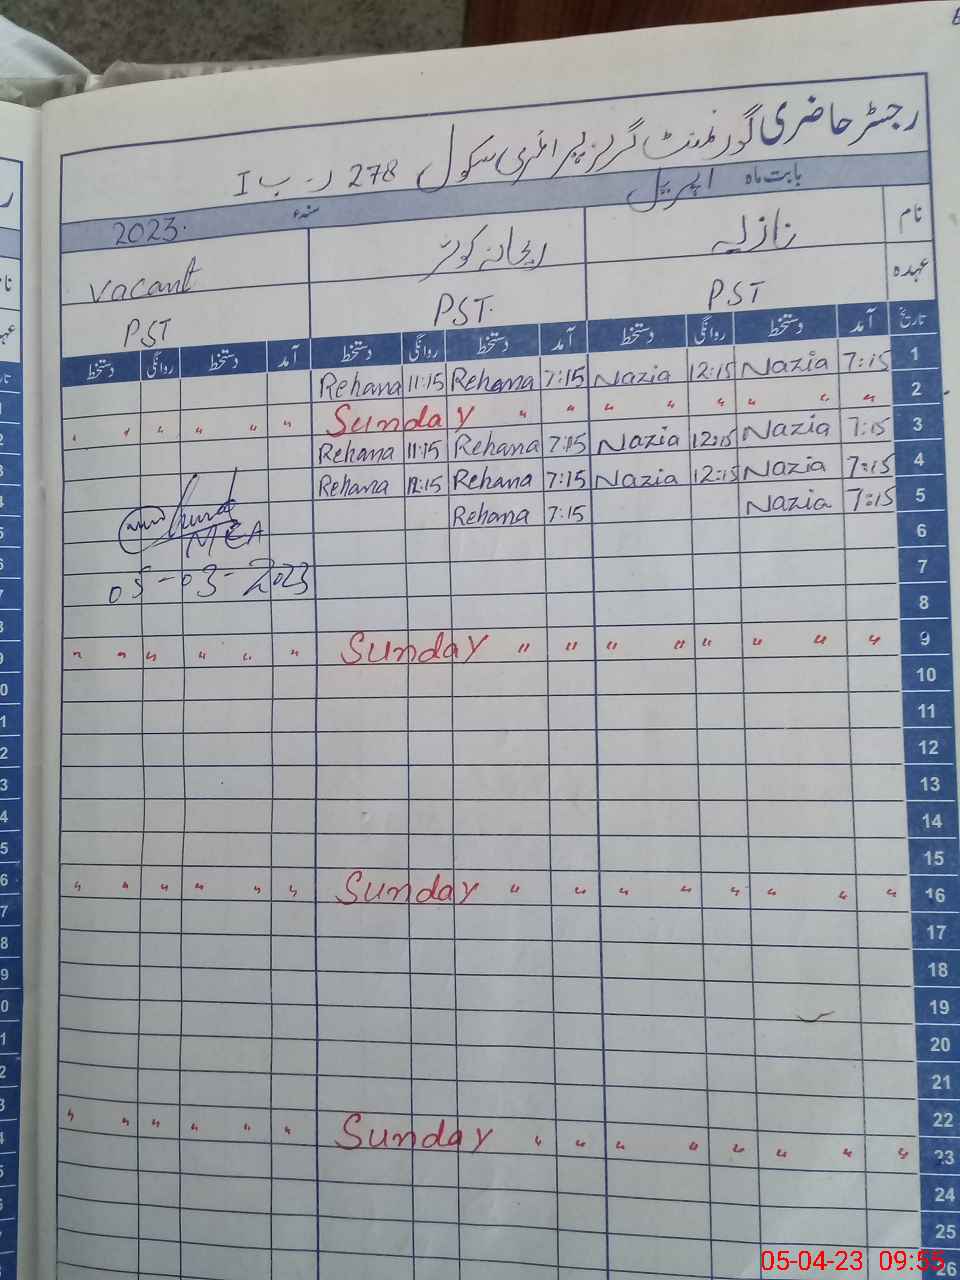 رجسٹر حاضری گورنمنٹ گرلز پرائمری سکول 278 ر۔ب I
بابت ماہ اپریل سنہء 2023.
نام نازیہ ریحانہ کوثر vacant
عہدہ PST PST. PST
تاریخ آمد دستخط روانگی دستخط آمد دستخط روانگی دستخط آمد دستخط روانگی دستخط
1 7:15 Nazia 12:15 Nazia 7:15 Rehana 11:15 Rehana
2 " " " " " " " " Sunday " " " " " "
3 7:15 Nazia 12:15 Nazia 7:15 Rehana 11:15 Rehana
4 7:15 Nazia 12:15 Nazia 7:15 Rehana 12:15 Rehana
5 7:15 Nazia 7:15 Rehana
6
MEA
7
05-03-2023
8
9 " " " " " " " " Sunday " " " " " "
10
11
12
13
14
15
16 " " " " " " " " Sunday " " " " " "
17
18
19
20
21
22
23 " " " " " " " " Sunday " " " " " "
24
25
26
05-04-23 09:55